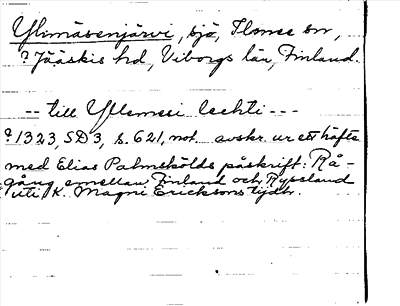 Ylimäsenjärvi, sjö, Ilomee sn,
? Jääskis hd, Viborgs län, Finland.
-- till Yllemesi lechti ---
? 1323, SD 3, s. 621, not. avskr. ur ett häfte
med Elias Palmskölds påskrift: Rå-
gång emellan Finland och Ryssland
uti K. Magni Ericksons tijdh.